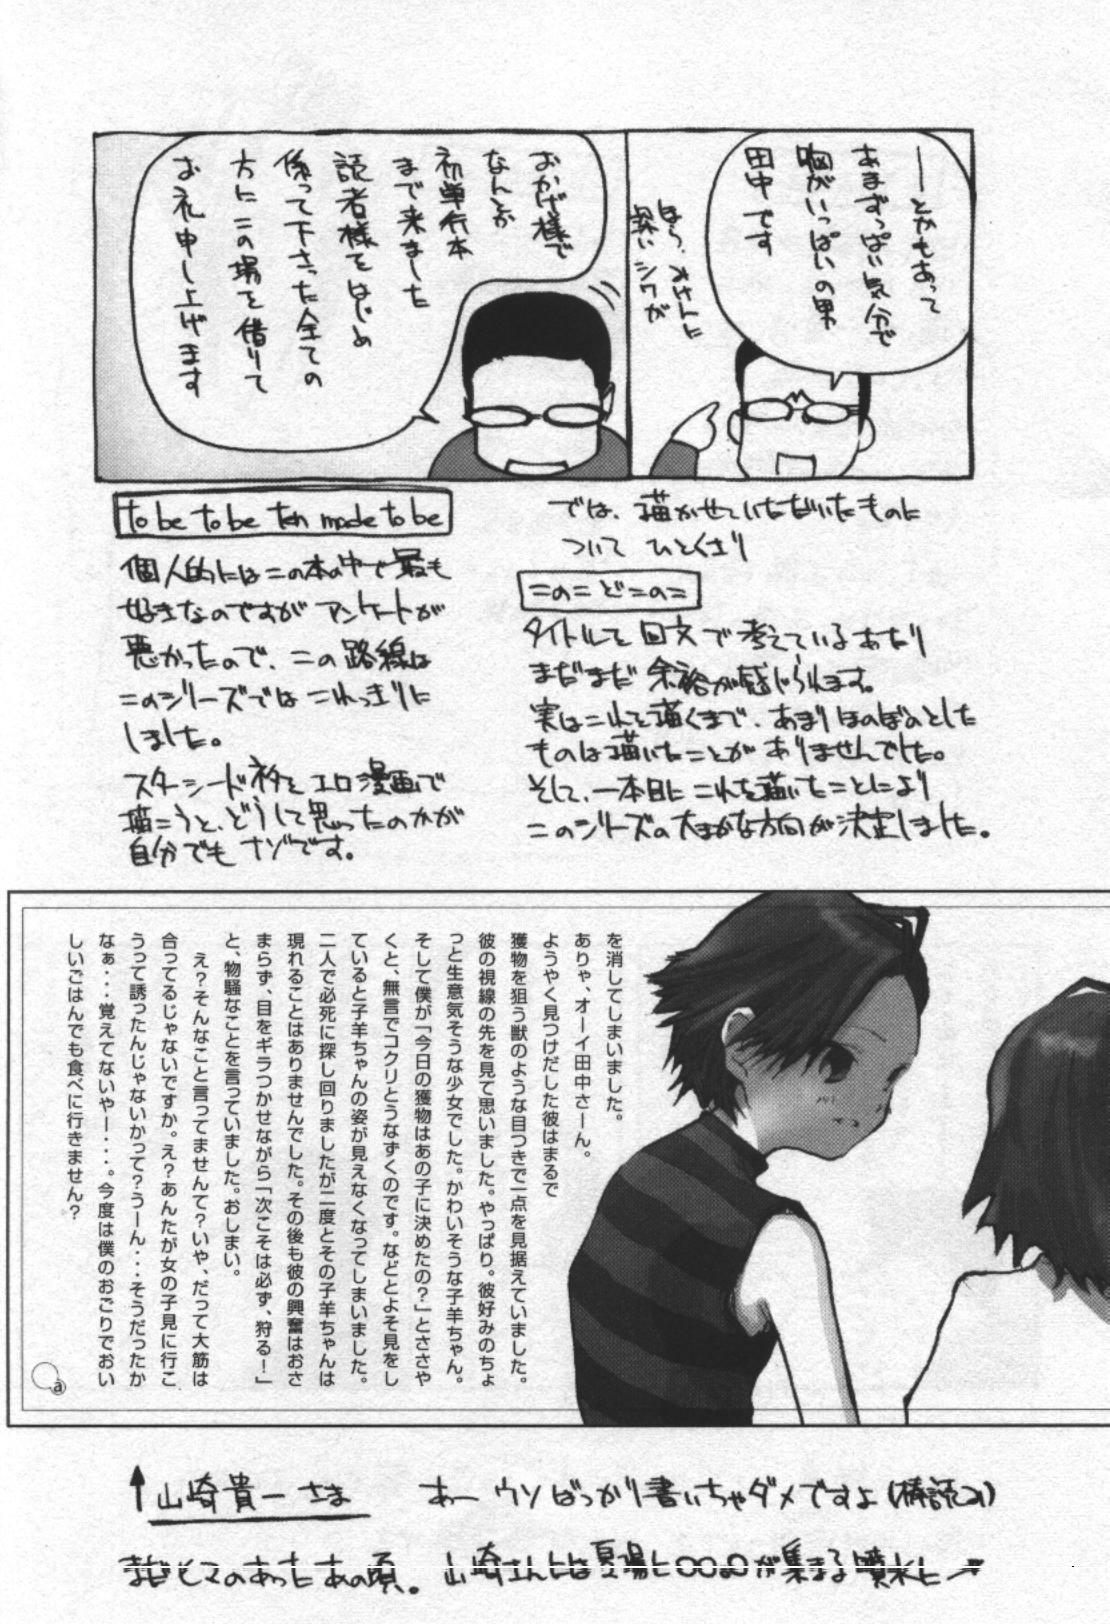 ―とかもあって
あまずっぱい気分で
胸がいっぱいの男
田中です
ほら、オケツに
深いシワが
おかげ様で
なんとか
初単行本
まで来ました
読者様をはじめ
係って下さった全ての
方にこの場を借りて
お礼申し上げます
では、描かせていただいたものに
ついて ひとくさり
このこどこのこ
タイトルを回文で考えているあたり
まだまだ余裕が感じられます。
実はこれを描くまで、あまりほのぼのとした
ものは描いたことがありませんでした。
そして、一本目にこれを描いたことにより
このシリーズの大まかな方向が決定しました。
to be to be ten made to be
個人的にはこの本の中で最も
好きなのですがアンケートが
悪かったので、この路線は
このシリーズではこれっきりに
しました。
スターシードネタをエロ漫画で
描こうと、どうして思ったのかが
自分でもナゾです。
を消してしまいました。
ありゃ、オーイ田中さーん。
ようやく見つけだした彼はまるで
獲物を狙う獣のような目つきで一点を見据えていました。
彼の視線の先を見て思いました。やっぱり。彼好みのちょ
っと生意気そうな少女でした。かわいそうな子羊ちゃん。
そして僕が「今日の獲物はあの子に決めたの？」とささや
くと、無言でコクリとうなずくのです。などとよそ見をし
ていると子羊ちゃんの姿が見えなくなってしまいました。
二人で必死に探し回りましたが二度とその子羊ちゃんは
現れることはありませんでした。その後も彼の興奮はおさ
まらず、目をギラつかせながら「次こそは必ず、狩る！」
と、物騒なことを言っていました。おしまい。
え？そんなこと言ってませんて？いや、だって大筋は
合ってるじゃないですか。え？あんたが女の子見に行こ
うって誘ったんじゃないかって？うーん・・・そうだったか
なぁ・・・覚えてないやー・・・。今度は僕のおごりでおい
しいごはんでも食べに行きません？
a
↑山崎貴一さま あー ウソばっかり書いちゃダメですよ(棒読み)
まだヒマのあったあの頃。山崎さんとは夏場に○○○○が集まる噴水に